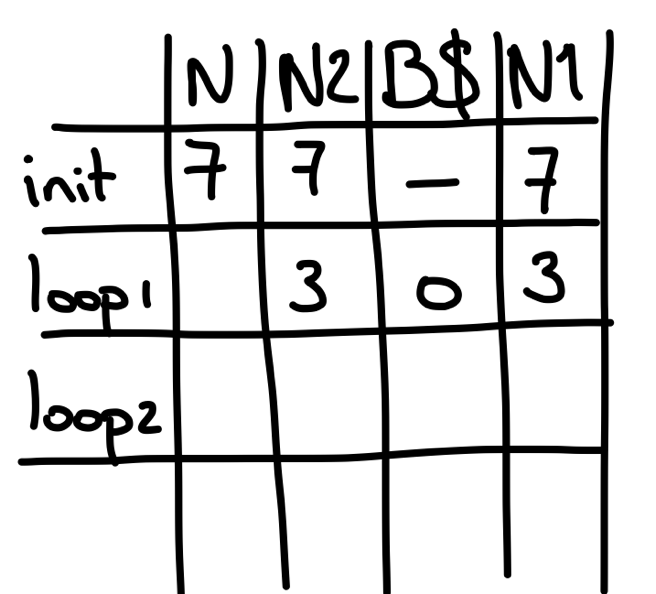 N N2 B$ N1
init 7 7 – 7
loop1 3 0 3
loop2